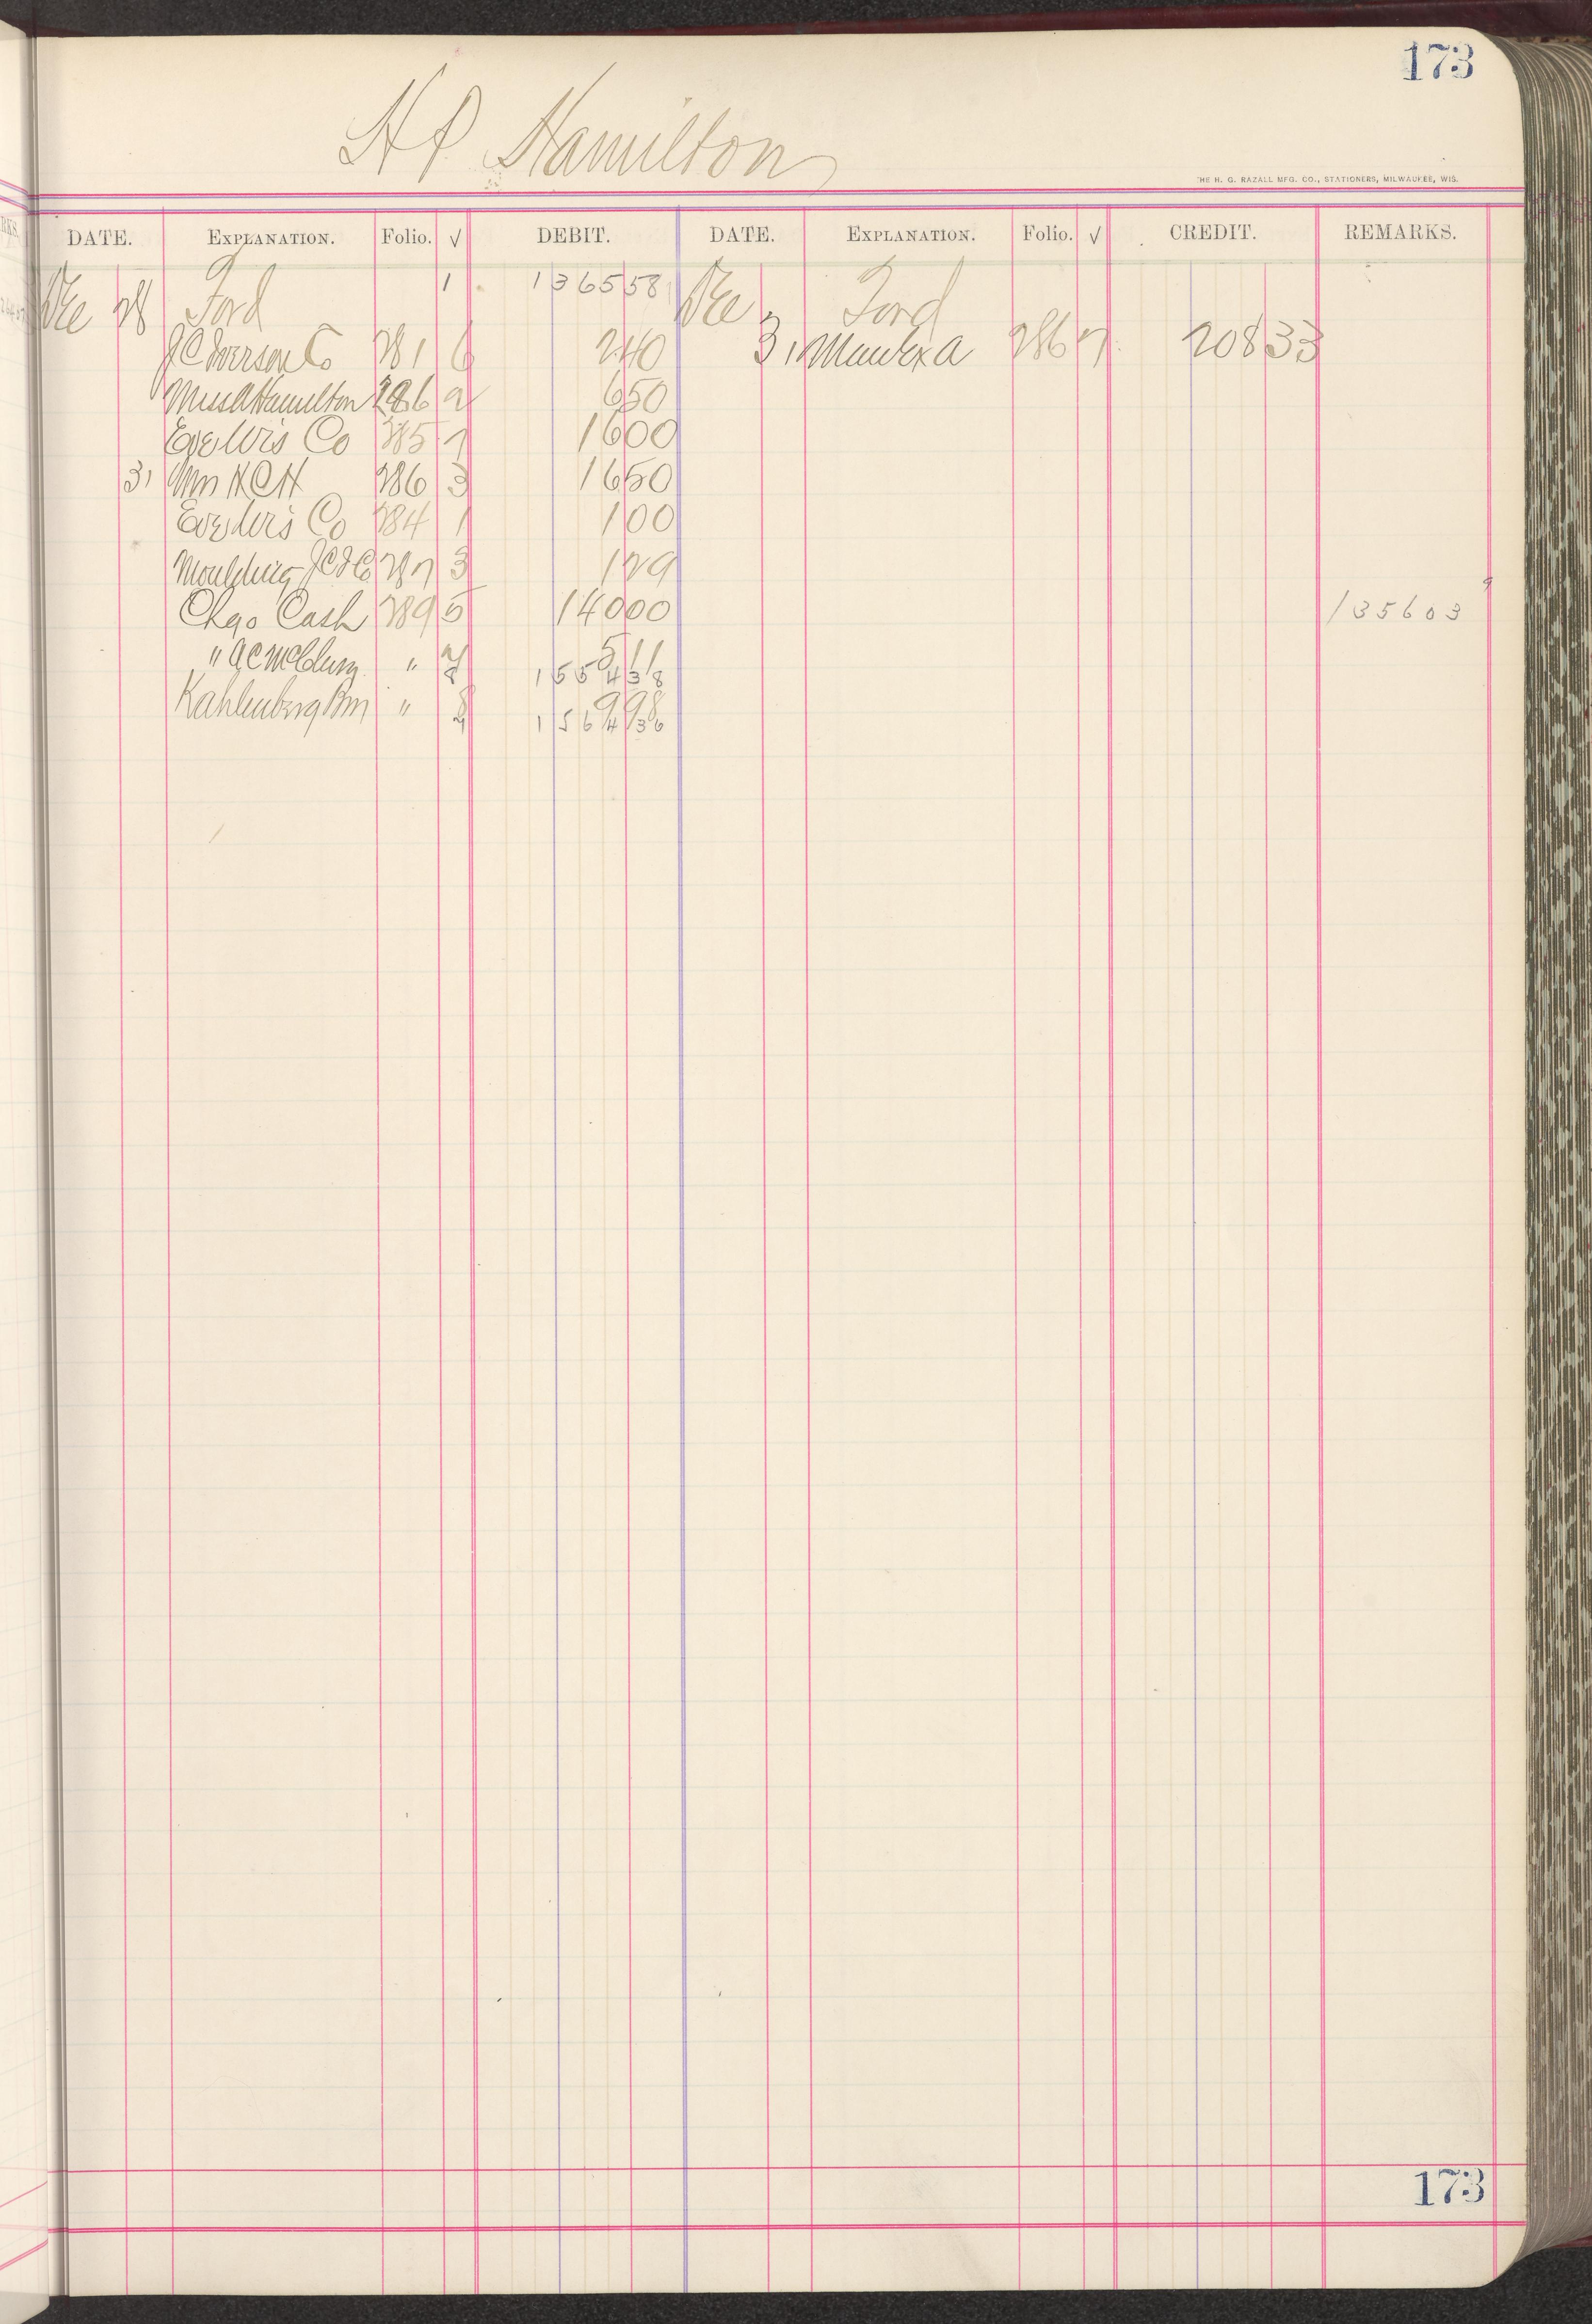 173
H P Hamilton
THE H. G. RAZALL MFG. CO., STATIONERS, MILWAUKEE, WIS.
DATE. EXPLANATION. Folio. √ DEBIT. DATE. EXPLANATION. Folio. √ CREDIT. REMARKS.
Dec 28 Ford 1 1365 58 Dec Ford
J C Iverson Co 281 6 2 40 31 Manfg a 286 7 208 33
Miss A Hamilton 286 2 6 50
Eve Wis Co 285 7 16 00
31 Mm H C H 286 3 16 50
Eve Wis Co 284 1 1 00
Moulding J C I Co 287 3 1 29
Chgo Cash 289 5 140 00 1356 03
" A C McClurg " 7 5 11
1554 38
Kahlenberg Bro " 8 9 98
1564 36
173